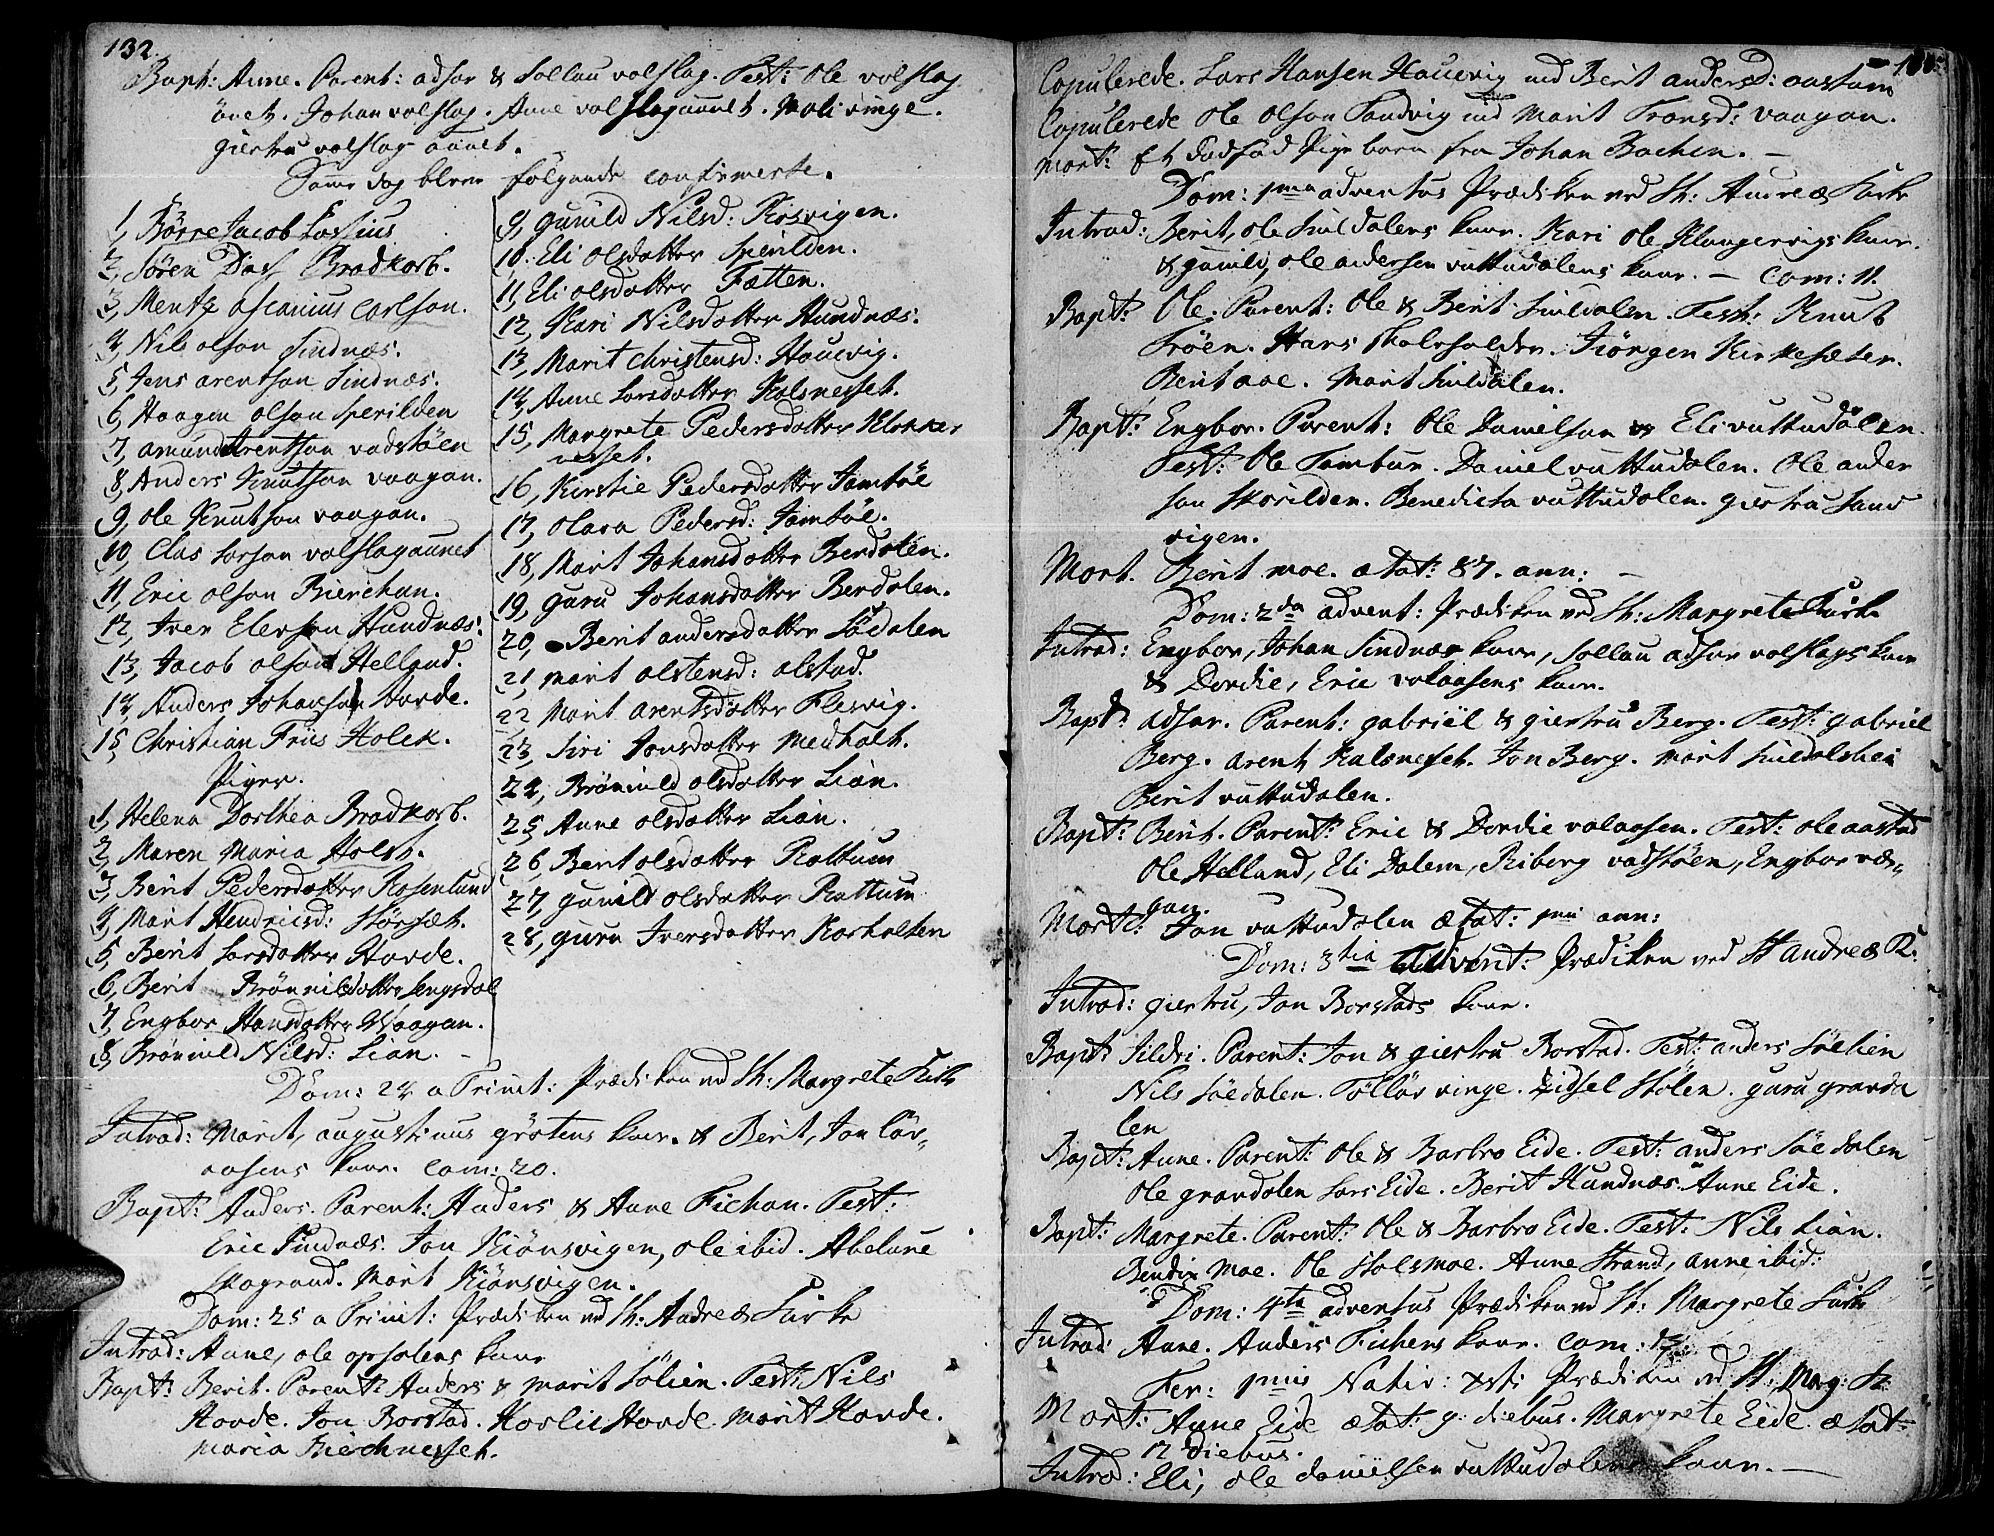 132.
Bapt: Anne. Parent: adsar & Sollau valslag. Test: Ole valslag
ånet. Johan valslag. Anne valslagaunet. Mali ringe.
giertru valslag aunet.
Same dag blev følgende confirmerte.
1, Børre Jacob Lossius
2, Sören Dass Bradkorb.
3, Mentz ascanius Carlson.
4, Nils olson Sindnæs.
5, Jens arentson Sindnæs.
6, Haagen olson Sperilden
7, amund Arentson vadstöen
8, Anders Knutson vaagan.
9, ole Knutson vaagan.
10, Clas Larson valslagaunet
11, Eric olson Bierchan.
12, Iver Elerson Hundnæs.
13, Jacob olson Helland.
14, Anders Johanson Hovde.
15, Christian Friis Holck.
Piger.
1, Helena Dorthea Bradkorb.
2, Maren Maria Holst.
3, Berit Pedersdatter Rosenlund
4, Marit Hendricsd: Störsæt.
5, Berit Larsdatter Hovde.
6, Berit Brönnildatter Lengsdal
7, Engbor Hansdatter Waagan.
8, Brönnild Nilsd: Lian. -
9, guruld Nilsd: Rosvigen.
10. Eli olsdatter Sperilden.
11, Eli olsdatter Fætten.
12, Kari Nilsdatter Hundnæs.
13, Marit christensd: Hauevig.
14, Anne Larsdatter Kalsnesset.
15, Margrete Pedersdatter Klokker
nesset.
16, Kirstie Pedersdatter Tamtöe
17, olava Pedersd: Tamtöe.
18, Marit Johansdatter Berdalen.
19, guru Johansdatter Berdalen.
20, Berit andersdatter Södalen
21, marit olstensd: alstad.
22 Marit arentsdatter Flesvig.
23, Siri Jonsdatter Medhalt.
24, Brönnild olsdatter Lian.
25, Anne olsdatter Lian.
26, Berit olsdatter Rattum
27, gunild olsdatter Rattum
28, guru Iversdatter Karhalten
Dom: 24 a Trinit: Prædiken ved St: Margrete Kirke
Introd: Marit, augustinus grötens kone. & Berit, Jon Cör-
aasens kone. com: 20.
Bapt: Anders. Parent: Anders & Anne Fichan. Test:
Eric Sindnæs. Jon Kiönsvigen, ole ibid. Abelune
Skogrand. Marit Kiönsvigen.
Dom: 25 a Trinit: Prædiken ved St: Andreæ Kirke
Introd: Anne, ole opsalens kone
Bapt: Berit. Parent: Anders & marit Sölien. Test: Nils
Hovde. Jon Borstad. Karlie Hovde. Marit Hovde.
maria Bierchnesset.
Copulerede. Lars Hansen Hauevig med Berit andersd: aastum
Copulerede Ole Olson Sandvig med Marit Tronsd: vaagan.
Mort: Et Dödfød Pige barn fra Johan Bachen. -
Dom: 1ma adventus Prædiken ved St: Andreæ Kirke
Introd: Berit, ole Suldalens kone. Kari ole Klungervigs kone.
& gunild, ole andersen vuttudalens kone. - com: 11.
Bapt: Ole. Parent: Ole & Berit Suldalen. Test: Knut
Tröen. Hans skoleholder. Jörgen Kirkesæter.
Berit moe. Marit Suldalen.
Bapt: Engbor. Parent: Ole Danielson & Eli vuttudalen.
Test: Ole Tambur. Daniel vuttudalen. Ole ander
son Skarilden. Benedicta vuttudalen. giertru Sand
vigen.
Mort. Berit moe. ætat: 87. ann: -
Dom: 2da advent: Prædiken ved St: Margrete Kirke
Introd: Engbor, Johan Sindnæs kone, Sollau adsar valslags kone
& Dordie, Eric valaasens kone.
Bapt: adsar. Parent: gabriel & giertru Berg. Test: gabriel
Berg. arent Kalsnesset. Jon Berg. Marit Suldalslien
Berit vuttudalen.
Bapt: Berit. Parent: Eric & Dordie valaasen. Test: ole aastad
Ole Helland, Eli Dalem, Riborg vadstöen, Engbor vaa-
gan.
Mort: Jon vuttudalen ætat: 1mi ann:
Dom: 3tia Advent: Prædiken ved St Andreæ K:
Introd: giertru, Jon Borstads kone.
Bapt: Sildri. Parent: Jon & giertru Borstad. Test: anders Sölien
Nils Söedalen. Tollör ringe. Zidsel Stölen. guru granda
len
Bapt: Anne. Parent: Ole & Barbro Eide. Test: anders Söedalen
Ole grandalen Lars Eide. Berit Hundnæs. Anne Eide.
Bapt: Margrete. Parent: Ole & Barbro Eide. Test: Nils Lian.
Bendix moe. Ole Stolsmoe. Anne Strand, anne ibid:
Dom: 4ta adventus Prædiken ved St: Margrete Kirke
Introd: Anne. Anders Fichens kone. com: 13.
Fer: 1mis Nativ: xsti Prædiken ved St: Marg: K:
Mort: Anne Eide ætat: 9: diebus. Margrete Eide. ætat:
12 diebus.
Introd: Eli, ole danielsen vuttudalens kone. -